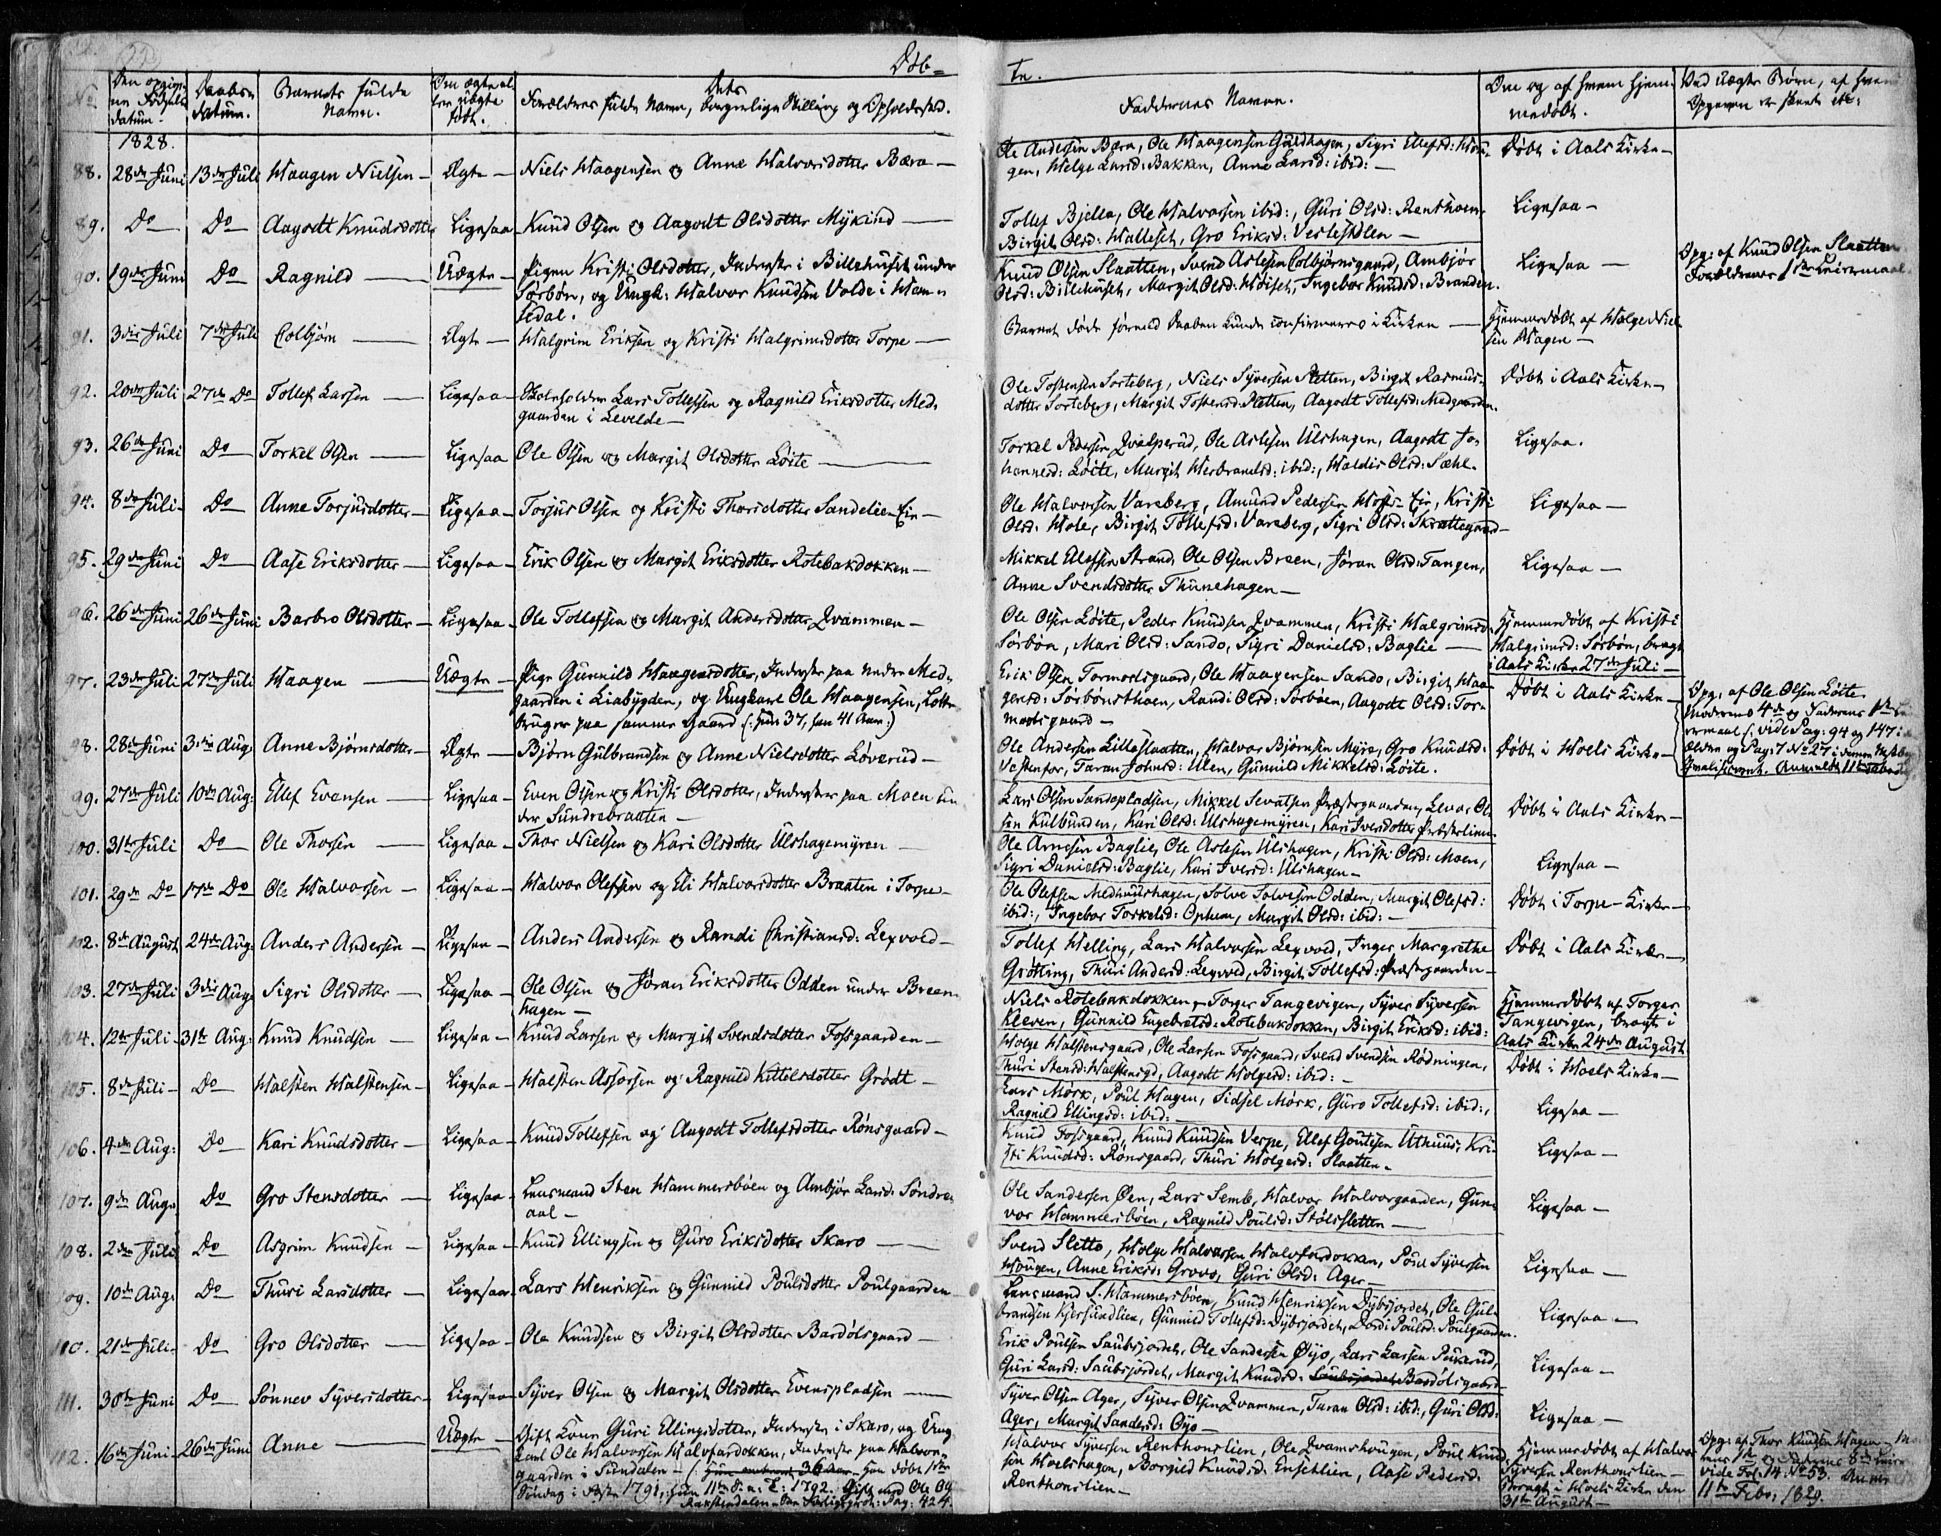 22
Døb=
te.
No
Den opgivne Fødsels datum.
Daabens datum.
Barnets fulde Navn.
Om ægte eller uægte født.
Forældrenes fulde Navn, Dets borgerlige Stilling og Opholdssted.
Faddernes Navne.
Om og af hvem hjemmedøbt.
Ved uægte Børn, af hvem Opgaven er skeet etc:
1828.
88. 28de Juni 13de Juli Haagen Nielsen — Ægte — Niels Haagensen og Anne Halvorsdotter Bæra —
Ole Andersen Bæra, Ole Haagensen Guldhagen, Sigri Ellefsd: Hougen, Helge Larsd: Bakken, Anne Larsd: ibid: —
Døbt i Aals Kirke —
89. Do — Do — Aagodt Knudsdotter Ligesaa — Knud Olsen og Aagodt Olsdotter Mykind —
Tollef Bjella, Ole Halvorsen ibid:, Guri Olsd: Renthoen
Birgit Olsd: Halleset, Gro Eriksd: Vestestølen —
Ligesaa —
90. 19de Juni Do Ragnild — Uægte — Pigen Kristi Olsdotter, Inderste i Billehuset under
Sørbøn, og Ungk: Halvor Knudsen Volde i Hem=
sedal.
Knud Olsen Slaatten, Svend Aslesen Colbjørnsgaard, Ambjør
Olsd: Billehuset, Margit Olsd: Høiset, Ingebor Knudsd: Branden.
Ligesaa —
Opg: af Knud Olsen Slaatten
Forældrenes 1ste Leiermaal.
91. 3die Juli 7de Juli Colbjørn — Ægte — Halgrim Eriksen og Kristi Halgrimsdotter Torpe —
Barnet døde førend Daaben kunde confirmeres i Kirken —
Hjemmedøbt af Helge Niel-
sen Hagen —
92. 20de Juli 27de Do Tollef Larsen — Ligesaa — Skoleholder Lars Tollefsen og Ragnild Eriksdotter Med-
gaarden i Levelde —
Ole Tostensen Sorteberg, Niels Syversen Pletten, Birgit Rasmus-
dotter Sorteberg, Margit Tostensd: Pletten, Aagodt Tollefsd: Medgaarden.
Døbt i Aals Kirke —
93. 26de Juni Do — Torkel Olsen — Ligesaa Ole Olsen og Margit Olsdotter Løite —
Torkel Pedersen Qvalperud, Ole Aslesen Ulshagen, Aagodt Jo-
hannesd: Løite, Margit Herbrandsd: ibid:, Haldis Olsd: Sæhl.
Ligesaa.
94. 8de Juli — Do — Anne Torjusdotter — Ligesaa — Torjus Olsen og Kristi Thorsdotter Sandelien Eie —
Ole Halvorsen Vareberg, Amund Pedersen Hoff-Eie, Kristi
Olsd: Hole, Birgit Tollefsd: Vareberg, Sigri Olsd: Skrattegaard —
Ligesaa —
95. 29de Juni Do — Aase Eriksdotter — Ligesaa — Erik Olsen og Margit Eriksdotter Rotebakdokken —
Mikkel Elefsen Strand, Ole Olsen Breen, Jøran Olsd: Tangen,
Anne Svendsdotter Thunehagen —
Ligesaa —
96. 26de Juni 26de Juni Barbro Olsdotter — Ligesaa — Ole Tollefsen og Margit Andersdotter Qvammen —
Ole Olsen Løite, Peder Knudsen Qvammen, Kristi Halgrimsd:
Sørbøn, Mari Olsd: Sando, Sigri Danielsd: Baglie —
Hjemmedøbt af Kristi
Halgrimsd: Sørbøn, bragt
i Aals Kirke 27de Juli —
97. 23de Juli 27de Juli Haagen — Uægte — Pige Gunnild Haagensdotter, Inderste paa nedre Med-
gaarden i Liabygden, og Ungkarl Ole Haagensen, Lotte-
bruger paa samme Gaard (: hun 37, han 41 Aar:)
Erik Olsen Tormodsgaard, Ole Haagensen Sando, Birgit Haa-
gensd: Sørbønsthoen, Randi Olsd: Sørbøen, Aagodt Olsd: Tor-
modsgaard —
Døbt i Aals Kirke —
Opg: af Ole Olsen Løite
Moderens 4de og Faderens 1ste
98. 28de Juni 3die Aug: Anne Bjørnsdotter — Ægte — Bjørn Gulbrandsen og Anne Nielsdotter Løverud —
Ole Andersen Lilleslaatten, Halvor Bjørnsen Myro, Gro Knudsd:
Vestenfor, Taran Johnsd: Ulen, Gunnild Mikkelsd: Løite.
Døbt i Hoels Kirke —
99. 27de Juli 10de Aug: Ellef Evensen — Ligesaa — Even Olsen og Kristi Olsdotter, Inderster paa Moen un-
der Sundrebraaten —
Lars Olsen Sandopladsen, Mikkel Sevatsen Præstegaarden, Levor Ol-
sen Kulbunden, Kari Olsd: Ulshagemyren, Kari Iversdotter Præstelien.
Døbt i Aals Kirke —
100. 31te Juli Do — Ole Thorsen — Ligesaa — Thor Nielsen og Kari Olsdotter Ulshagemyren —
Ole Arnesen Baglie, Ole Aslesen Ulshagen, Kristi Olsd: Moen,
Sigri Danielsd: Baglie, Kari Iversd: Ulshagen —
Ligesaa —
101. 29de Do 17de Do Ole Halvorsen — Ligesaa — Halvor Olefsen og Eli Halvorsdotter Braaten i Torpe —
Ole Olefsen Medhuushagen, Solve Solvesen Odden, Margit Olefsd:
ibid:, Ingebor Torkelsd: Ophem, Margit Olsd: ibid: —
Døbt i Torpe Kirke —
102. 8de August 24de Aug: Anders Andersen — Ligesaa — Anders Andersen og Randi Christiansd: Legvold —
Tollef Helling, Lars Halvorsen Legvold, Inger Margrethe
Grøtting, Thuri Andersd: Legvold, Birgit Tollefsd: Præstegaarden —
Døbt i Aals Kirke —
103. 27de Juli 3die Aug: Sigri Olsdotter — Ligesaa — Ole Olsen og Jøran Eriksdotter Odden under Breen-
hagen —
Niels Rotebakdokken, Torger Tangevigen, Syver Syversen
Kleven, Gunnild Engebretsd: Rotebakdokken, Birgit Eriksd: ibid:
Hjemmedøbt af Torger
Tangevigen, bragt i
Aals Kirke 24de August
104. 12te Juli — 31te Aug: Knud Knudsen — Ligesaa — Knud Larsen og Margit Svendsdotter Fossgaarden —
Helge Halstensgaard, Ole Larsen Fossgaard, Svend Svendsen Rødningen,
Thuri Stensd: Halstensgd, Aagodt Helgesd: ibid: —
Døbt i Hoels Kirke —
105. 8de Juli — Do — Halsten Halstensen — Ligesaa — Halsten Assorsen og Ragnild Kittilsdotter Grødt —
Lars Mørk, Poul Hagen, Sidsel Mørk, Guro Tollefsd: ibid:,
Ragnild Ellingsd: ibid: —
Ligesaa —
106. 4de Aug: Do Kari Knudsdotter — Ligesaa — Knud Tollefsen og Aagodt Tollefsdotter Rønsgaard —
Knud Fossgaard, Knud Knudsen Verpe, Ellef Goutesen Uthuus, Kri-
sti Knudsd: Rønsgaard, Thuri Helgesd: Slaatten —
Ligesaa —
107. 9de Aug: Do Gro Stensdotter — Ligesaa — Lensmand Sten Hammersbøen og Ambjør Larsd: Søndre-
aal —
Ole Sandersen Øen, Lars Semb, Halvor Halvorgaarden, Gun-
vor Hammersbøen, Ragnild Poulsd: Stølsletten —
Ligesaa —
108. 2den Juli Do Asgrim Knudsen — Ligesaa — Knud Ellingsen og Guro Eriksdotter Skaro —
Svend Sletto, Helge Halvorsen Halvfardokken, Poul Syversen
Hougen, Anne Eriksd: Grovo, Guri Olsd: Ager —
Ligesaa —
109. 10de Aug: Do Thuri Larsdotter — Ligesaa — Lars Henriksen og Gunnild Poulsdotter Poulgaarden —
Lensmand S. Hammersbøen, Knud Henriksen Dybsjordet, Ole Gul-
brandsen Kjersundlien, Gunnild Tollefsd: Dybsjordet, Dordi Poulsd: Poulgaarden.
Ligesaa —
110. 21de Juli — Do — Gro Olsdotter — Ligesaa — Ole Knudsen og Birgit Olsdotter Bardolsgaard —
Erik Poulsen Saubsjordet, Ole Sandersen Øyo, Lars Larsen Pukerud,
Guri Larsd: Saubsjordet, Margit Knudsd: Saubsjordet Bardolsgaard —
Ligesaa —
111. 30te Juni Do Sønnev Syversdotter — Ligesaa — Syver Olsen og Margit Olsdotter Evenspladsen —
Syver Olsen Ager, Syver Olsen Qvammen, Taran Olsd: ibid:, Guri Olsd:
Ager, Margit Sandersd: Øyo —
Ligesaa —
112. 16de Juni — 26de Juni Anne — Uægte — Gift Kone Guri Ellingsdotter, Inderste i Skaro, og Ung-
karl Ole Halvorsen Halvfardokken, Inderste paa Halvor-
gaarden i Sundalen —
Halvor Syversen Renthonslien, Ole Qvamshougen, Poul Knud-
sen Hoelshagen, Borgild Knudsd: Enschlien, Aase Pedersd:
Renthonslien —
Hjemmedøbt af Halvor
Syversen Renthonslien —
Bragt i Hoels Kirke den
31te August —
Opg: af Thor Knudsen Hagen
vide Fol: 14. No 53.
11te Febr: 1829.